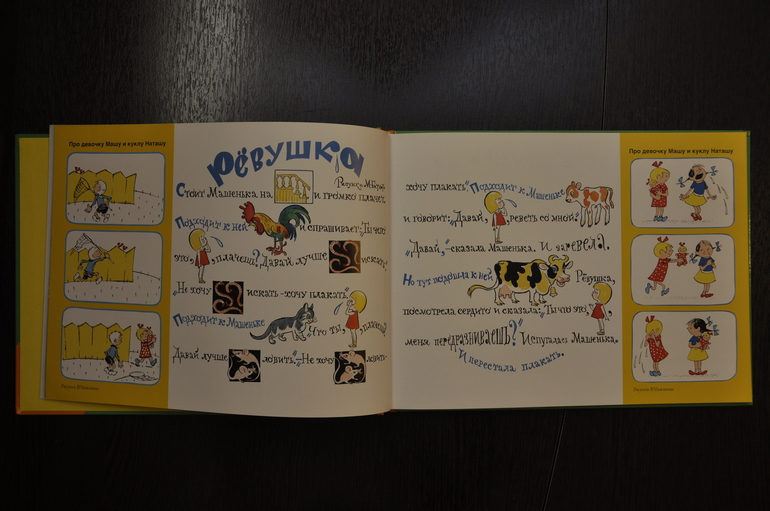 Про девочку Машу и куклу Наташу
РЁВУШКА
Стоит Машенька на и громко плачет.
Подходит к ней и спрашивает: „Ты что
это, плачешь? Давай лучше искать!
„Не хочу искать - хочу плакать"
Подходит к Машеньке „Что ты, плачешь?
Давай лучше ловить." „Не хочу ловить-
хочу плакать" Подходит к Машеньке
и говорит: „Давай, реветь со мной?"
„Давай," - сказала Машенька. И заревела.
Но тут подошла к ней Рёвушка,
посмотрела сердито и сказала: „Ты что это,
меня передразниваешь?" Испугалась Машенька.
И перестала плакать.
Про девочку Машу и куклу Наташу